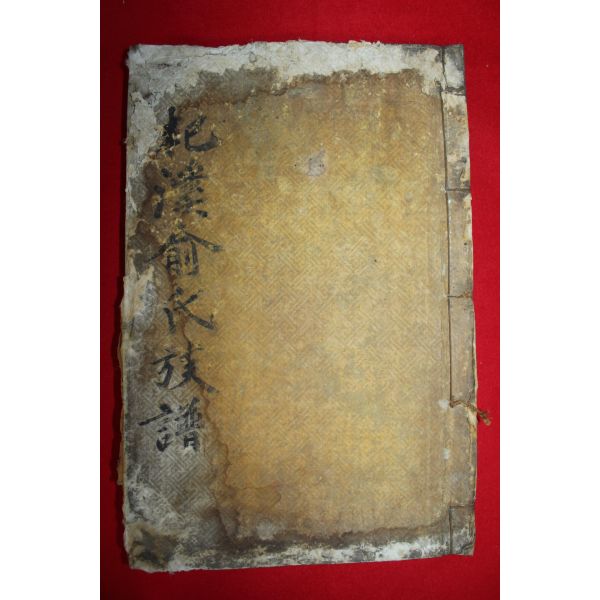 杞溪俞氏族譜